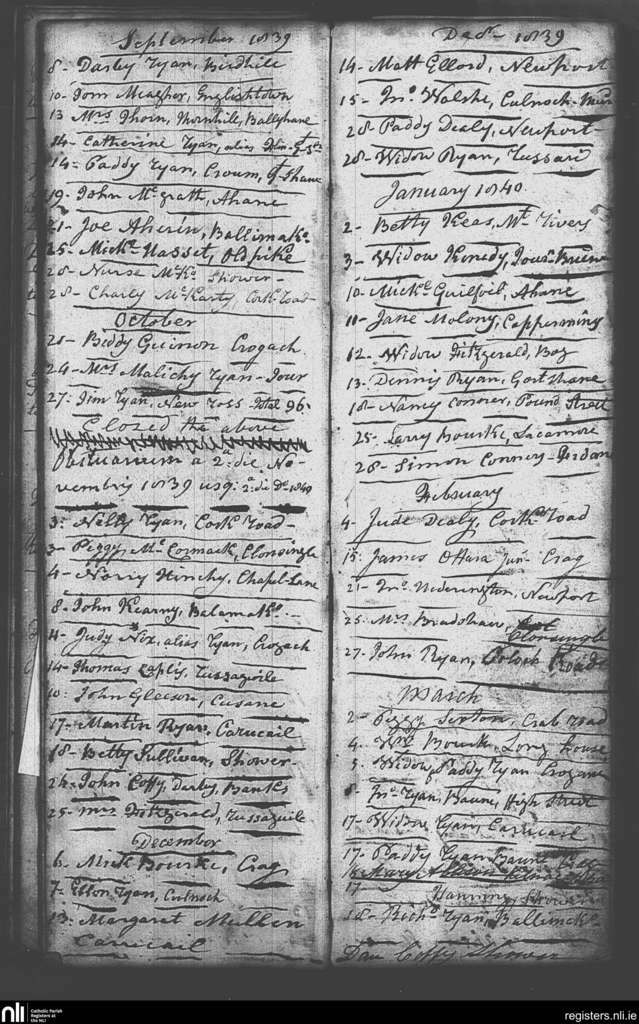 September 1839
8- Darby Ryan, Birdhill
10- Tom Meagher, Englishtown
13 Mrs Thorn, Thornhile, Ballyhane
14- Catherine Ryan, alias
14- Paddy Ryan, Croum,
19- John McGrath, Ahane
21- Joe Aherin, Ballimake
25- Mick Nasset, Old pike
28- Nurse McKe Shower
28- Charly McKarty, Cork Road
October
20- Biddy Guinon Crogach
24- Mrs Malichy Ryan-Tour
27: Jim Ryan, New Ross Total 96.
Closed the above
Obituarium a 2a. die No-
vembris 1839 usq: 2a: die De 1840
3: Nelly Ryan, Cork Road-
3- Peggy McCormack, Clonsingle
4- Norry Hinchy, Chapel-Lane
8- John Kearny, Balamake
11- Judy Nix, alias Ryan, Crogach
14- Thomas Laplis, Tussaguile
10: John Gleeson, Cusane
17- Martin Ryan, Carucail
18- Betty Sullivan, Shower-
24- John Coffy, Darby, Banks
25- Mrs Fitzgerald, Tussaguile
December
6. Mick Bourke, Crag
7- Ellen Ryan, Culnoch
13. Margaret Mullen
Carucail
Decr 1839
14- Matt Ellord, Newport
15- Jno Walshe, Culnock-
28- Paddy Dealy, Newport-
28- Widow Ryan, Tussard
January 1840
2- Betty Keas, Mt Rivers
3- Widow Kenedy, Tour-
10- Mickl Guilfoil, Ahane
11- Jane Molony, Capperming
12- Widow Fitzgerald, Bog
13- Dennis Ryan, Gortshane
18- Nancy Connor, Pound Street
25- Larry Bourke, Lacamore
28- Simon Connery-
February
4- Jude Dealy, Cork Road
15: James OHara Junr Crag
21- Jno Hederington, Newport
25: Mrs Bradshaw,
Clonsingle
27- John Ryan, Coloch Road
March
2- Peggy Sexton, Crab Road
4. Wm Bourk, Long House
5. Widow Paddy Ryan
8- Jno Ryan, Baune, High Street
17- Widow Ryan, Carucail
17- Paddy Ryan Baune
16 Mary
17 Hanning, Shower
18- Richd Ryan, Ballimcke
Dan Coffy Shower
nli Catholic Parish Registers at the NLI
registers.nli.ie